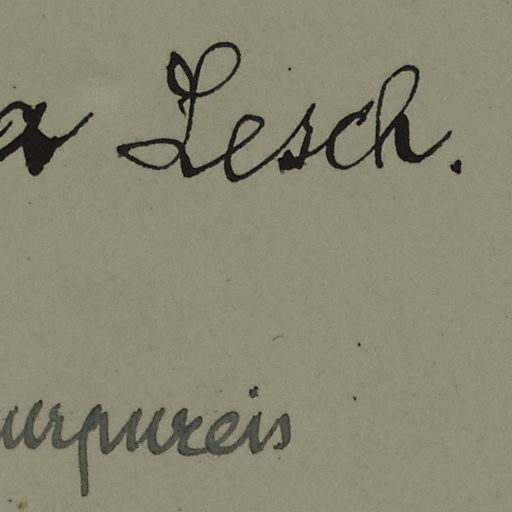 a Lesch.
urpureis